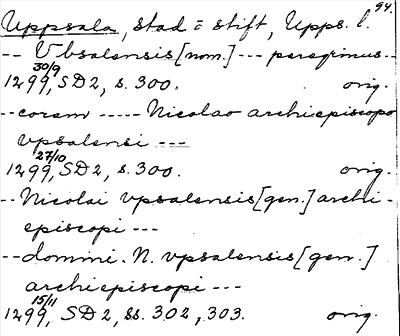 Uppsala, stad = stift, Upps. l. 94.
-- Vbsalensis [nom.] --- peregrinus--
30/9
1299, SD2, s. 300. orig.
--coram ----- Nicolao archiepiscopo
vpsalensi ---
27/10
1299, SD2, s. 300. orig.
--Nicolai vpsalensis [gen.] archi-
episcopi ---
--domini. N. vpsalensis [gen.]
archiepiscopi ---
15/11
1299, SD2, ss. 302, 303. orig.